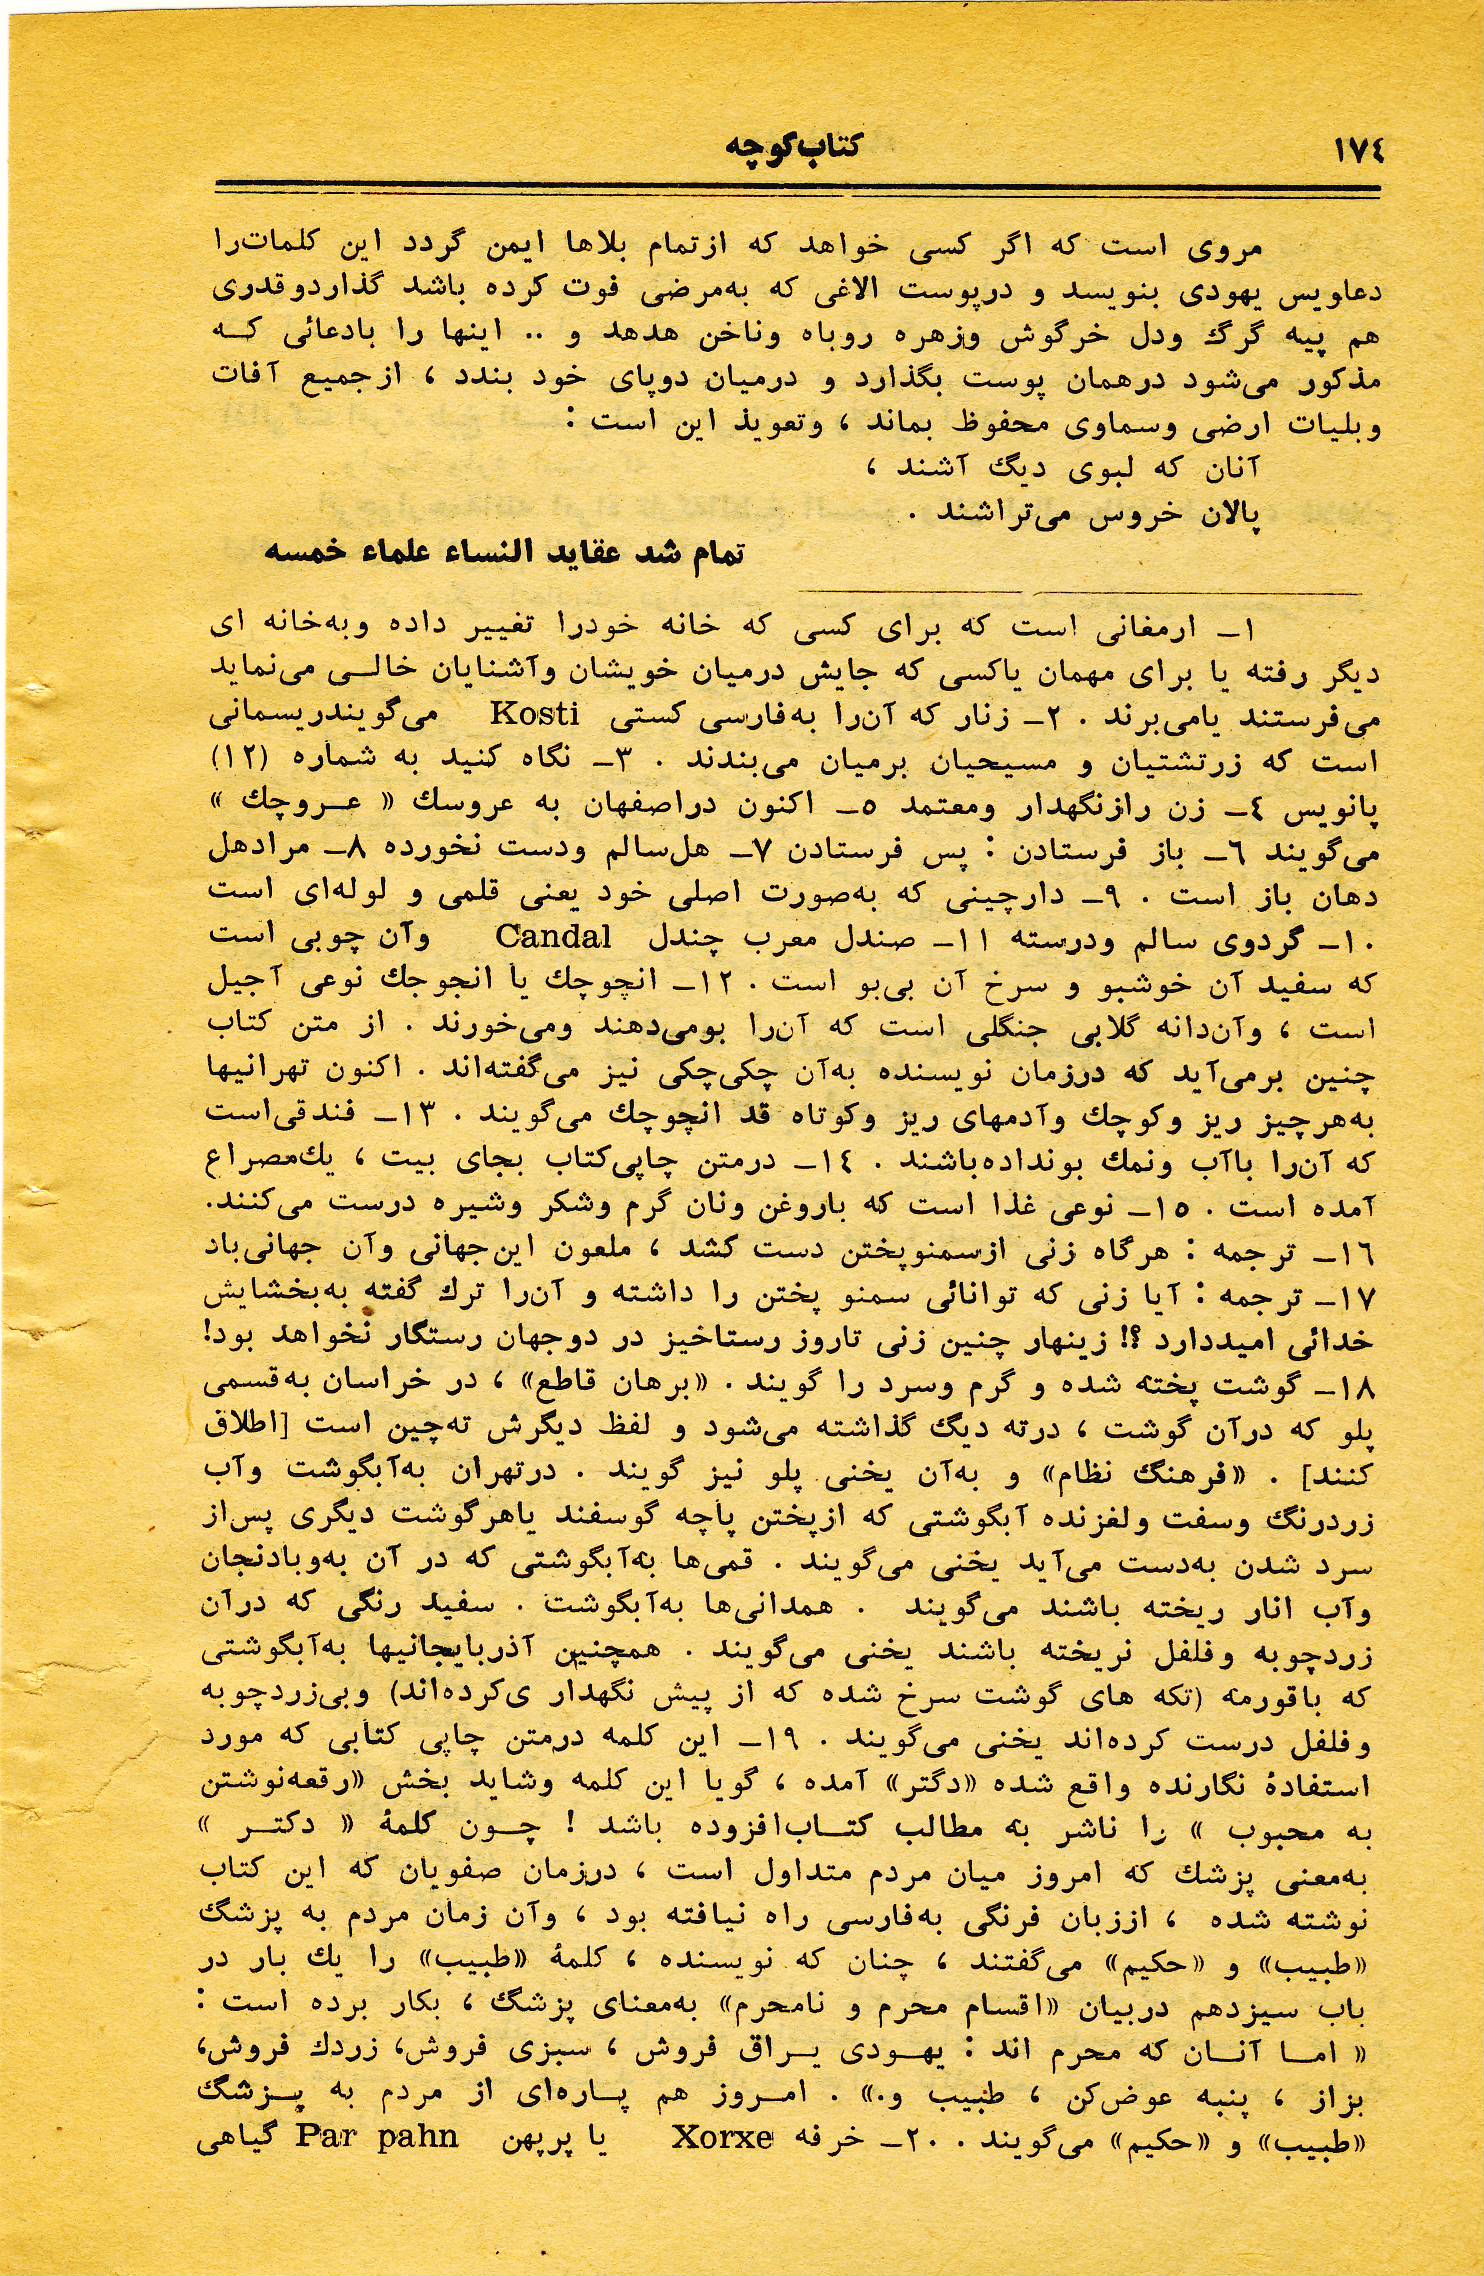 ۱۷٤
کتاب کوچه
مروی است که اگر کسی خواهد که ازتمام بلاها ایمن گردد این کلمات‌را
دعاویس یهودی بنویسد و درپوست الاغی که به‌مرضی فوت کرده باشد گذاردوقدری
هم پیه گرگ ودل خرگوش وزهره روباه وناخن هدهد و .. اینها را بادعائی کـه
مذکور می‌شود درهمان پوست بگذارد و درمیان دوپای خود بندد ، ازجمیع آفات
وبلیات ارضی وسماوی محفوظ بماند ، وتعویذ این است :
آنان که لبوی دیگ آشند ،
پالان خروس می‌تراشند .
تمام شد عقاید النساء علماء خمسه
۱ـ ارمغانی است که برای کسی که خانه خودرا تغییر داده وبه‌خانه ای
دیگر رفته یا برای مهمان یاکسی که جایش درمیان خویشان وآشنایان خالـی می‌نماید
می‌فرستند یامی‌برند . ۲ـ زنار که آن‌را به‌فارسی کستی Kosti می‌گویندریسمانی
است که زرتشتیان و مسیحیان برمیان می‌بندند . ۳ـ نگاه کنید به شماره (۱۲)
پانویس ٤ـ زن رازنگهدار ومعتمد ٥ـ اکنون دراصفهان به عروسك « عـروچك »
می‌گویند ٦ـ باز فرستادن : پس فرستادن ۷ـ هل‌سالم ودست نخورده ۸ـ مرادهل
دهان باز است . ۹ـ دارچینی که به‌صورت اصلی خود یعنی قلمی و لوله‌ای است
۱۰ـ گردوی سالم ودرسته ۱۱ـ صندل معرب چندل Candal وآن چوبی است
که سفید آن خوشبو و سرخ آن بی‌بو است . ۱۲ـ انچوچك یا انجوجك نوعی آجیل
است ، وآن‌دانه گلابی جنگلی است که آن‌را بومی‌دهند ومی‌خورند . از متن کتاب
چنین برمی‌آید که درزمان نویسنده به‌آن چکی‌چکی نیز می‌گفته‌اند . اکنون تهرانیها
به‌هرچیز ریز وکوچك وآدمهای ریز وکوتاه قد انچوچك می‌گویند . ۱۳ـ فندقی‌است
که آن‌را باآب ونمك بونداده‌باشند . ۱٤ـ درمتن چاپی‌کتاب بجای بیت ، یك‌مصراع
آمده است . ۱٥ـ نوعی غذا است که باروغن ونان گرم وشکر وشیره درست می‌کنند.
۱٦ـ ترجمه : هرگاه زنی ازسمنوپختن دست کشد ، ملعون این‌جهانی وآن جهانی‌باد
۱۷ـ ترجمه : آیا زنی که توانائی سمنو پختن را داشته و آن‌را ترك گفته به‌بخشایش
خدائی امیددارد ؟! زینهار چنین زنی تاروز رستاخیز در دوجهان رستگار نخواهد بود!
۱۸ـ گوشت پخته شده و گرم وسرد را گویند . «برهان قاطع» ، در خراسان به‌قسمی
پلو که درآن گوشت ، درته دیگ گذاشته می‌شود و لفظ دیگرش ته‌چین است [اطلاق
کنند] . «فرهنگ نظام» و به‌آن یخنی پلو نیز گویند . درتهران به‌آبگوشت وآب
زردرنگ وسفت ولغزنده آبگوشتی که ازپختن پاچه گوسفند یاهرگوشت دیگری پس‌از
سرد شدن به‌دست می‌آید یخنی می‌گویند . قمی‌ها به‌آبگوشتی که در آن به‌وبادنجان
وآب انار ریخته باشند می‌گویند . همدانی‌ها به‌آبگوشت . سفید رنگی که درآن
زردچوبه وفلفل نریخته باشند یخنی می‌گویند . همچنین آذربایجانیها به‌آبگوشتی
که باقورمه (تکه های گوشت سرخ شده که از پیش نگهدار ی‌کرده‌اند) وبی‌زردچوبه
وفلفل درست کرده‌اند یخنی می‌گویند . ۱۹ـ این کلمه درمتن چاپی کتابی که مورد
استفادۀ نگارنده واقع شده «دگتر» آمده ، گویا این کلمه وشاید بخش «رقعه‌نوشتن
به محبوب » را ناشر به مطالب کتـاب‌افزوده باشد ! چـون کلمۀ « دکتـر »
به‌معنی پزشك که امروز میان مردم متداول است ، درزمان صفویان که این کتاب
نوشته شده ، اززبان فرنگی به‌فارسی راه نیافته بود ، وآن زمان مردم به پزشگ
«طبیب» و «حکیم» می‌گفتند ، چنان که نویسنده ، کلمۀ «طبیب» را یك بار در
باب سیزدهم دربیان «اقسام محرم و نامحرم» به‌معنای پزشگ ، بکار برده است :
« امـا آنـان که محرم اند : یهـودی یـراق فروش ، سبزی فروش، زردك فروش،
بزاز ، پنبه عوض‌کن ، طبیب و.» . امـروز هم پـاره‌ای از مردم به پـزشگ
«طبیب» و «حکیم» می‌گویند . ۲۰ـ خرفه Xorxe یا پرپهن Par pahn گیاهی